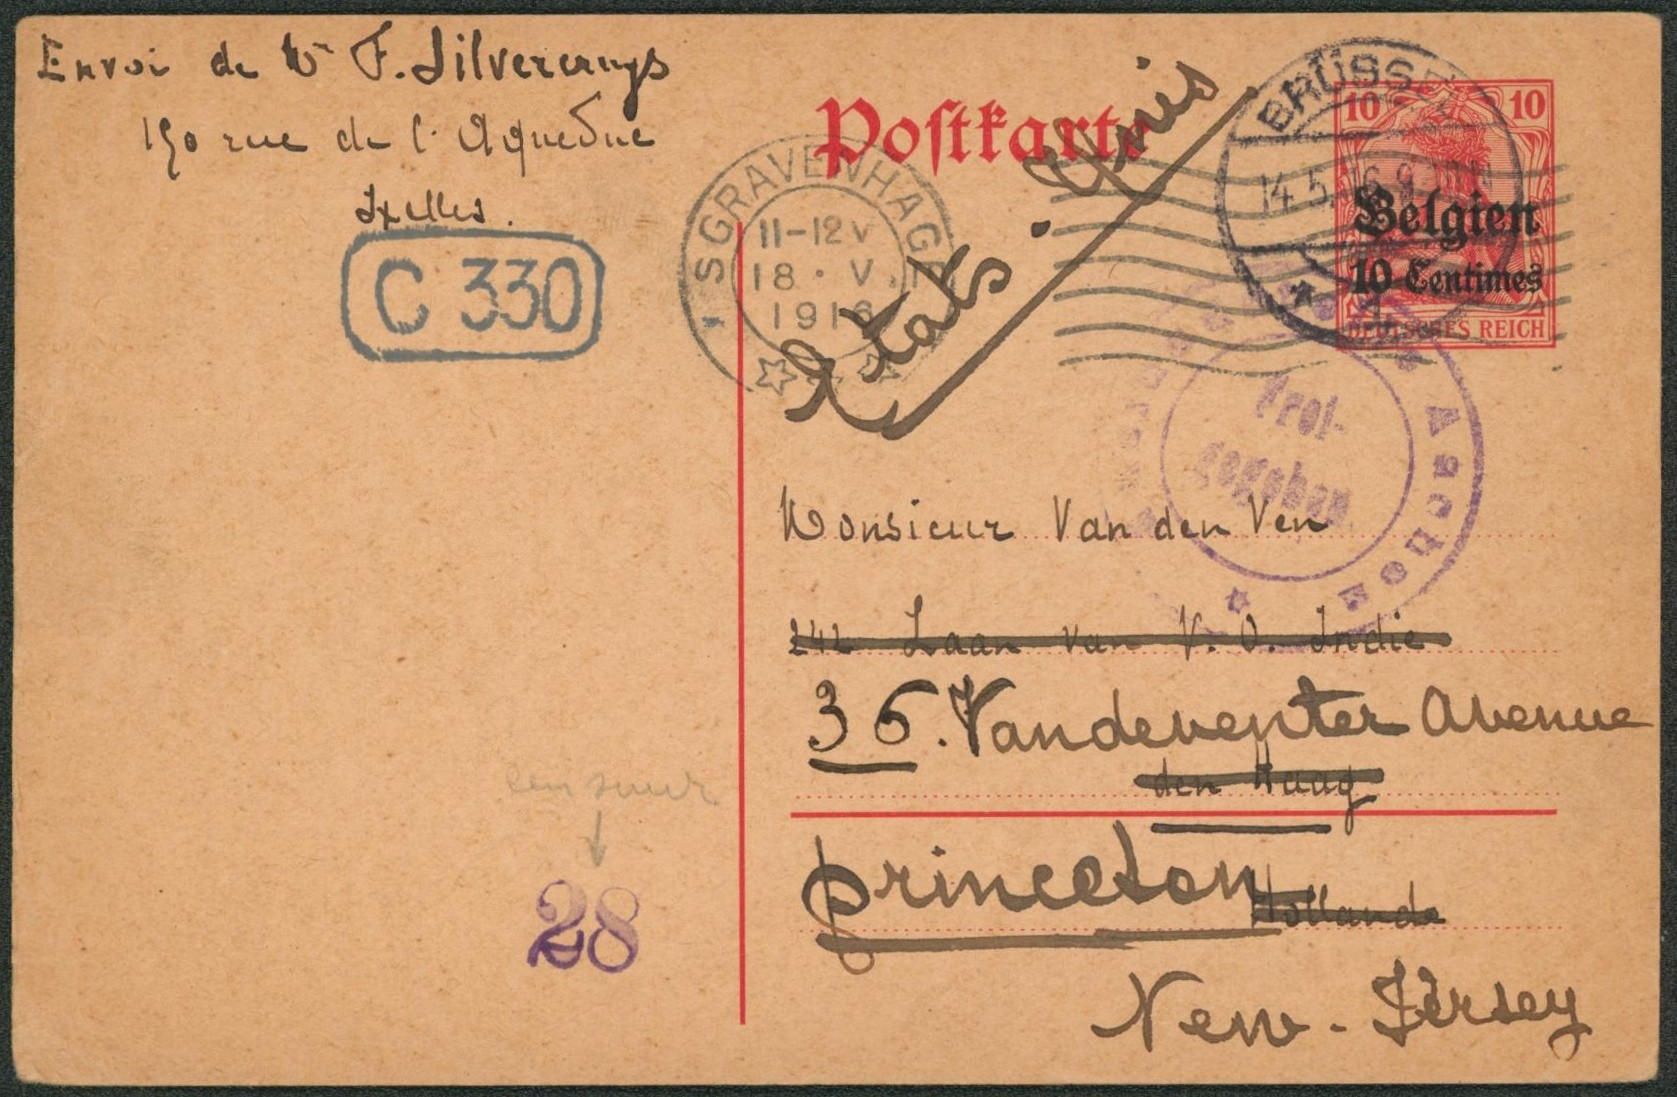 Envoi de Mr F. Silvercruys
190 rue de l'Aqueduc
Ixelles.
C 330
Postkarte
Etats-Unis
'SGRAVENHAGE
11-12V
18 · V
1916
BRÜSSEL
14.5.16.9
10 10
Belgien
10 Centimes
DEUTSCHES REICH
Aachen
Frei-
gegeben
Monsieur Van den Ven
242 Laan van V. O. Indie
36. Vandeventer Avenue
den Haag
Princeton
Hollande
New-Jersey
censuur
28